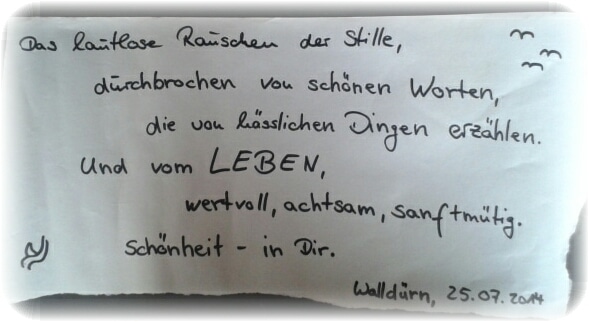 Das lautlose Rauschen der Stille,
durchbrochen von schönen Worten,
die von hässlichen Dingen erzählen.
Und vom LEBEN,
wertvoll, achtsam, sanftmütig.
Schönheit - in Dir.
Walldürn, 25.07.2014